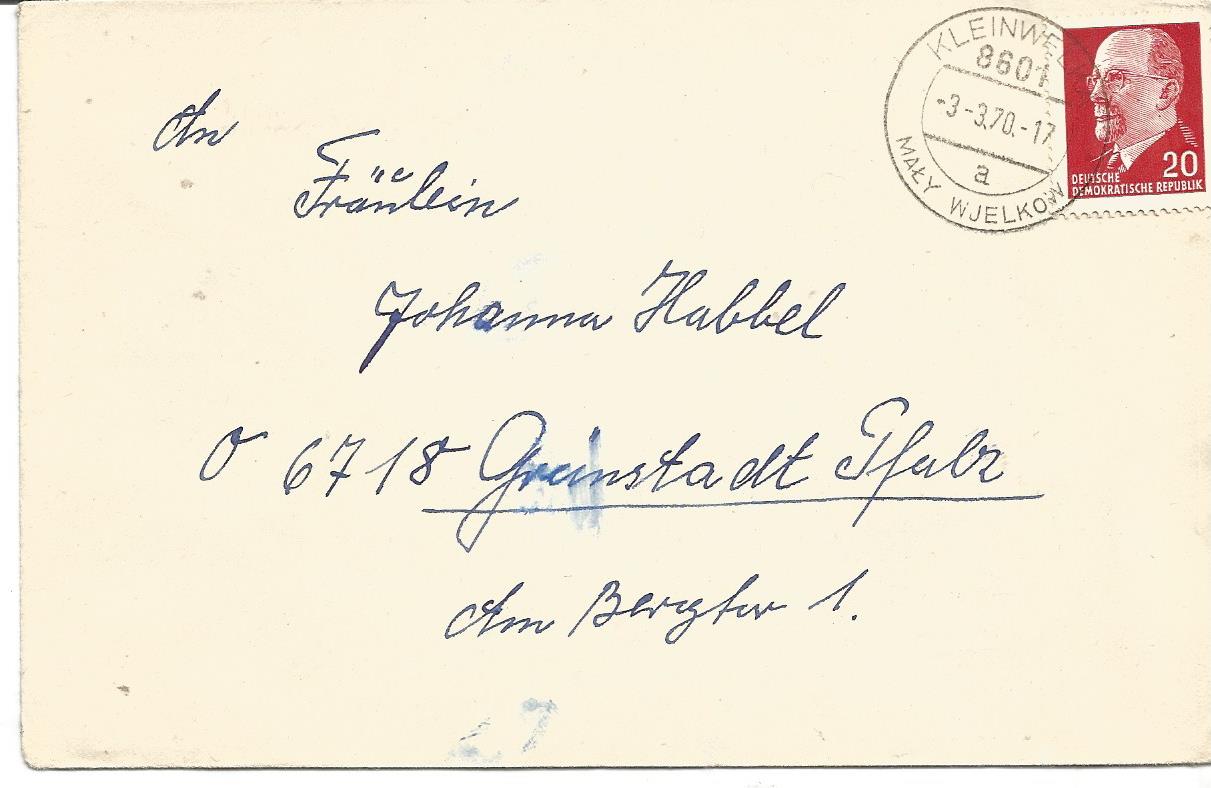 An
Fräulein
Johanna Habbel
O 6718 Grünstadt Pfalz
Am Bergtor 1.
KLEINWELKA
8601
-3-3.70.-17
a
MAŁY WJELKOW
20
DEUTSCHE
DEMOKRATISCHE REPUBLIK